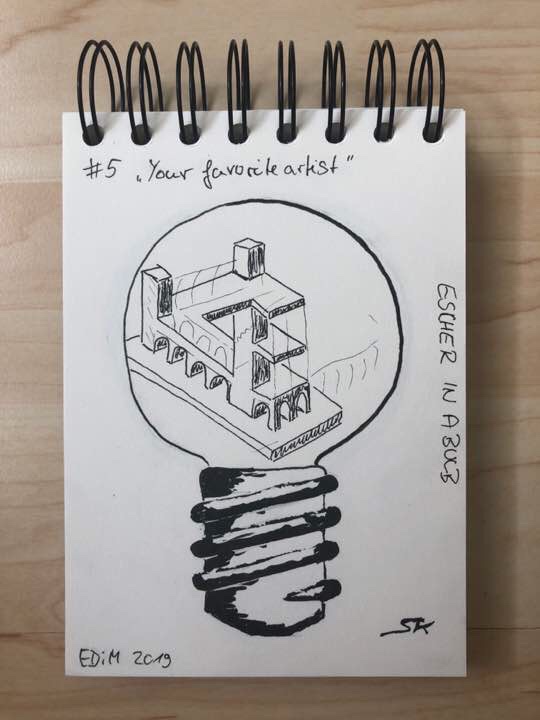 #5 „Your favorite artist”
ESCHER IN A BULB
EDiM 2019
SK